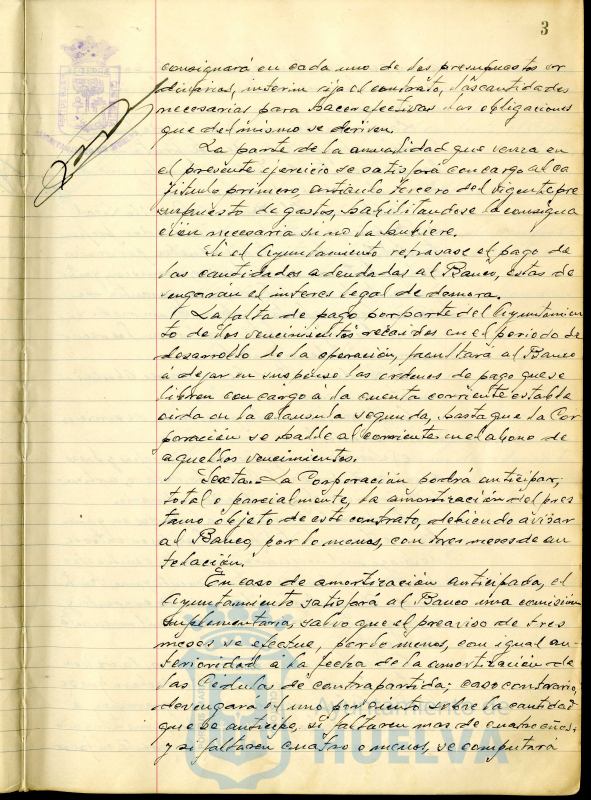 3
consignará en cada uno de los presupuestos or
dinarios, interim rija el contrato, las cantidades
necesarias para hacer efectivas las obligaciones
que del mismo se deriven.
La parte de la anualidad que venza en
el presente ejercicio se satisfará con cargo al ca
pitulo primero, articulo tercero del vigente pre
supuesto de gastos, habilitandose la consigna
ción necesaria si no la hubiere.
Si el Ayuntamiento retrasase el pago de
las cantidades adeudadas al Banco, estas de
vengarán el interes legal de demora.
La falta de pago por parte del Ayuntamien
to de los vencimientos recaidos en el periodo de
desarrollo de la operación, facultará al Banco
á dejar en suspenso las ordenes de pago que se
libren con cargo á la cuenta corriente estable
cida en la clausula segunda, hasta que la Cor
poración se halle al corriente en el abono de
aquellos vencimientos.
Sexta.- La Corporación podrá anticipar,
total o parcialmente, la amortización del pres
tamo objeto de este contrato, debiendo avisar
al Banco, por lo menos, con tres meses de an
telación.
En caso de amortización anticipada, el
Ayuntamiento satisfará al Banco una comisión
suplementaria, salvo que el preaviso de tres
meses se efectue, por lo menos, con igual an-
terioridad á la fecha de la amortización de
las Cédulas de contrapartida; caso contrario,
devengará el uno por ciento sobre la cantidad
que se anticipe, si faltaren mas de cuatro años,
y si faltaren cuatro o menos, se computará
HUELVA